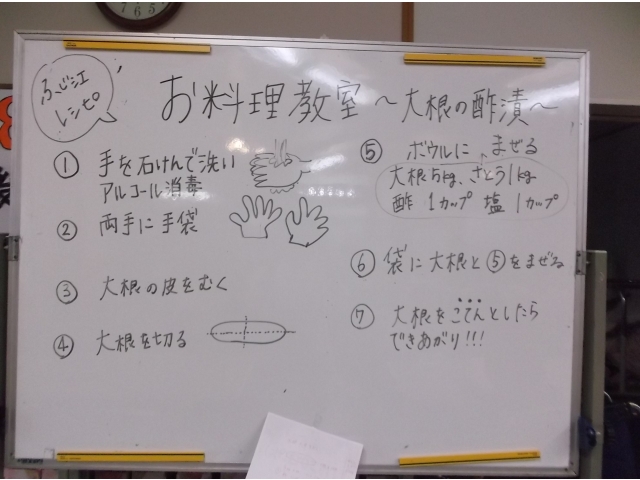 ふじ江
レシピ
お料理教室 ～大根の酢漬～
① 手を石けんで洗い
アルコール消毒
② 両手に手袋
③ 大根の皮をむく
④ 大根を切る
⑤ ボウルに、まぜる
大根5kg、さとう1kg
酢 1カップ 塩 1カップ
⑥ 袋に大根と⑤をまぜる
⑦ 大根をこてんとしたら
できあがり!!!